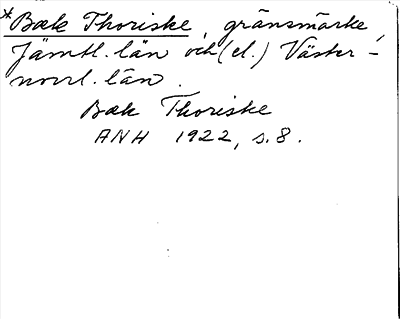 *Bæk Thoriske, gränsmärke,
Jämtl. län och (el.) Väster-
norrl. län.
Bæk Thoriske
ANH 1922, s. 8.